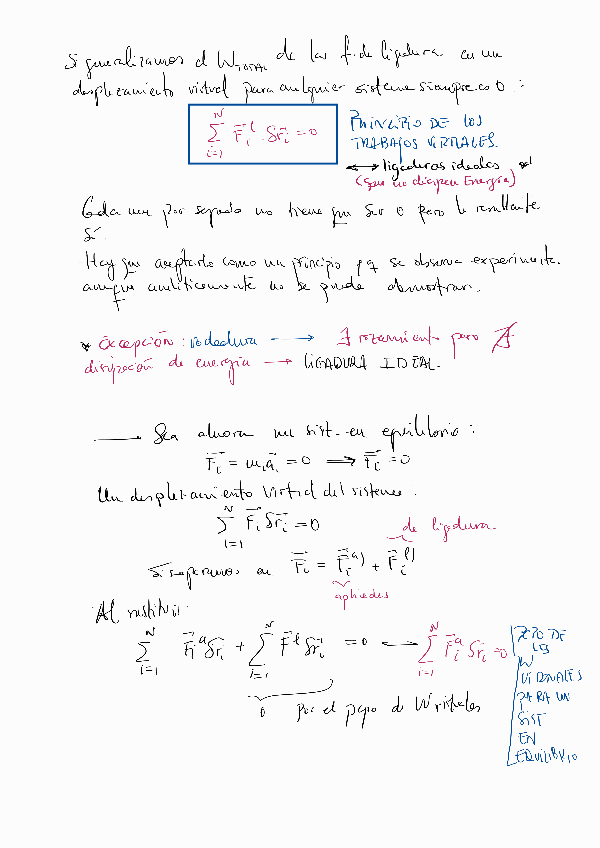 Si generalizamos el W_TOTAL de las f. de ligadura en un
desplazamiento virtual para cualquier sistema siempre es 0 :
\sum_{i=1}^{N} \vec{F}_i^l · δ\vec{r}_i = 0
PRINCIPIO DE LOS
TRABAJOS VIRTUALES.
↔ ligaduras ideales *
(que no disipan Energía)
Cada uno por separado no tiene que ser 0 pero la resultante
sí.
Hay que aceptarlo como un principio pq se observa experimente.
aunque analíticamente no se puede demostrar.
* Excepción : rodadura → ∃ rozamiento pero ∄
disipación de energía → LIGADURA IDEAL.
→ Sea ahora un sist. en equilibrio :
\vec{F}_i = m_i \vec{a}_i = 0 ⟹ \vec{F}_i = 0
Un desplazamiento virtual del sistema.
\sum_{i=1}^{N} \vec{F}_i δ\vec{r}_i = 0
de ligadura.
Si separamos en \vec{F}_i = \vec{F}_i^{a)} + \vec{F}_i^{l)}
aplicadas
Al sustituir
\sum_{i=1}^{N} \vec{F}_i^a δ\vec{r}_i + \sum_{i=1}^{N} \vec{F}^l δ\vec{r}_i = 0 ↔ \sum_{i=1}^{N} \vec{F}_i^a δ\vec{r}_i = 0
0 por el ppio de W virtuales
DE
LOS
W
VIRTUALES
PARA UN
SIST
EN
EQUILIBRIO